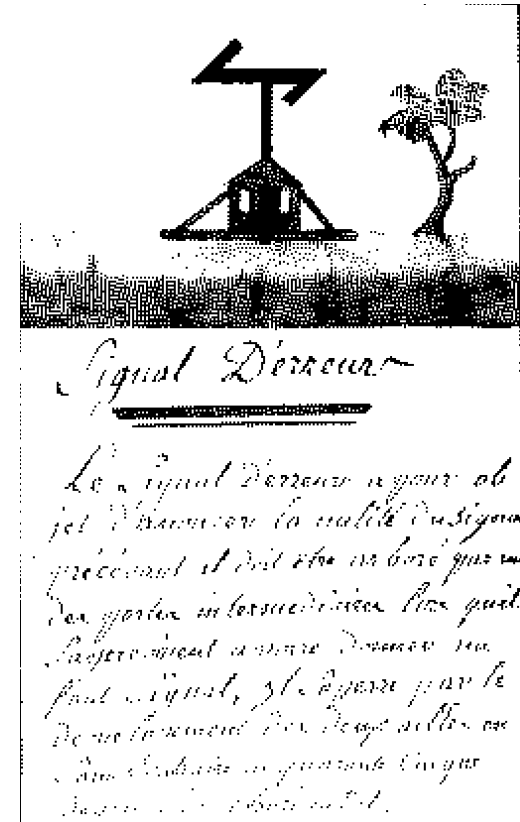 Signal D'erreur
Le Signal D'erreur a pour ob
jet D'annoncer la nulité du Signal
précédant et doit être arboré par
des postes intermédiaires lors qu'ils
s'apperçoivent avoir Donner un
faut Signal, Il S'opere par le
Developement des deux ailles en
Sens Contraire a quarante Cinque